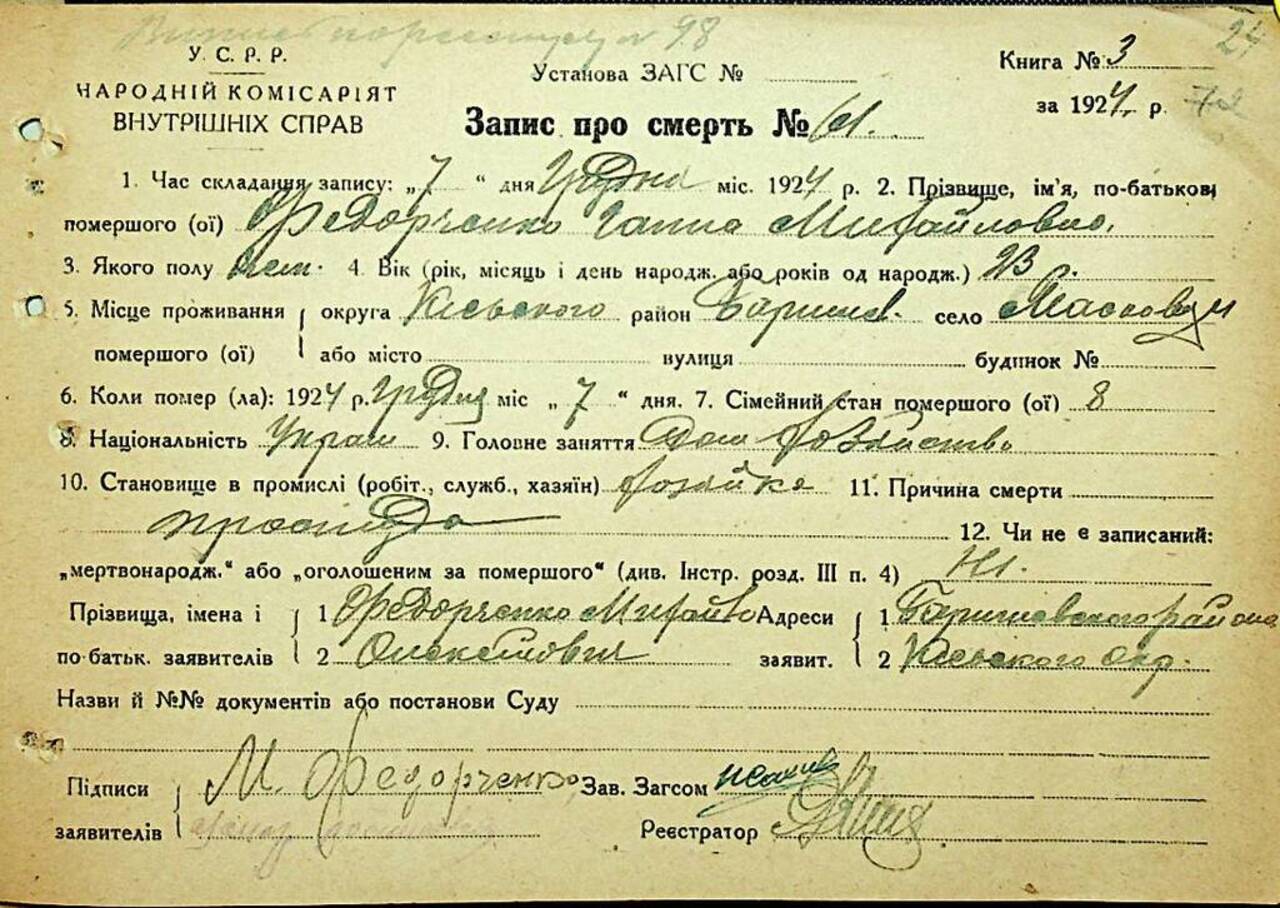 У. С. Р. Р.
НАРОДНІЙ КОМІСАРІЯТ
ВНУТРІШНІХ СПРАВ
Установа ЗАГС №
Книга № 3
за 1924 р.
24
98
Запис про смерть № 61.
1. Час складання запису: „ 7 “ дня Грудня міс. 1924 р. 2. Прізвище, ім'я, по-батькові
помершого (ої) Федорченко Ганна Михайловно.
3. Якого полу жен. 4. Вік (рік, місяць і день народж. або років од народж.) 23.
5. Місце проживання округа Кієвського район Баришев. село
помершого (ої) або місто вулиця будинок №
6. Коли помер (ла): 1924 р. грудня міс „ 7 “ дня. 7. Сімейний стан помершого (ої) 8
8. Національність Украін 9. Головне заняття Дом хозяйство
10. Становище в промислі (робіт., служб., хазяїн) хозяйка 11. Причина смерти
простуда 12. Чи не є записаний:
„мертвонародж.“ або „оголошеним за помершого“ (див. Інстр. розд. III п. 4) Ні.
Прізвища, імена і 1 Федорченко Михайло Адреси 1 Баришевского района
по-батьк. заявителів 2 Олексієвич заявит. 2 Кієвського окр.
Назви й №№ документів або постанови Суду
Підписи М. Федорченко Зав. Загсом
заявителів Реєстратор